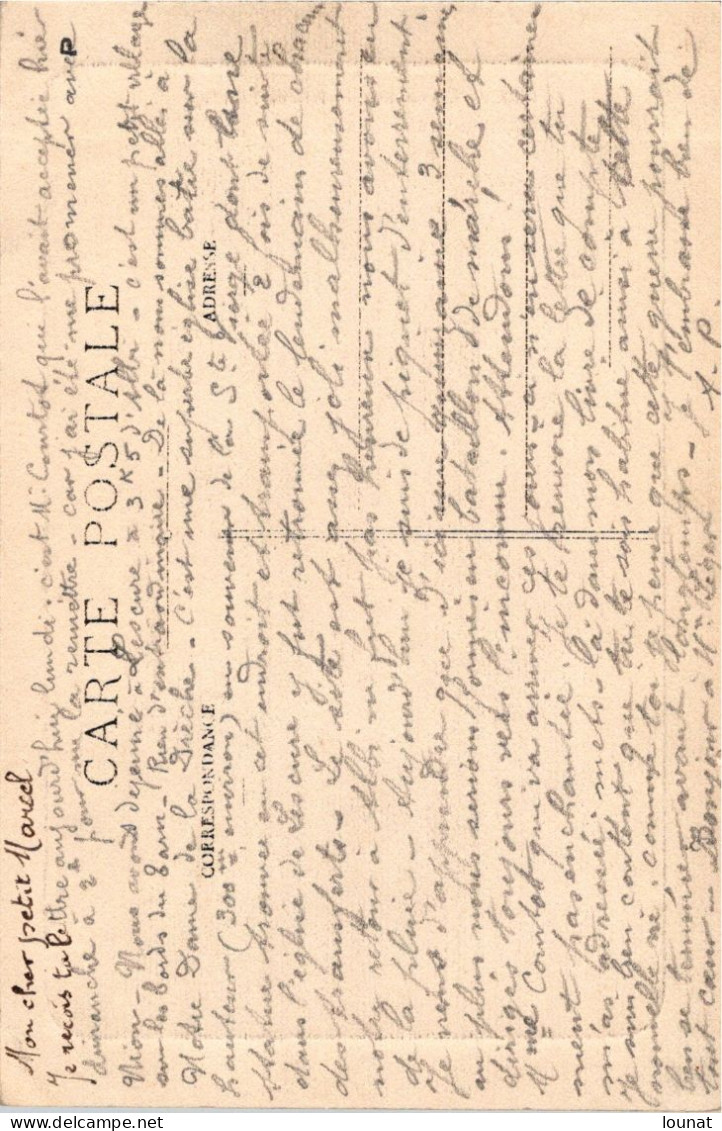 Mon cher petit Marcel
Je reçois ta lettre aujourd'hui lundi. c'est Mr Courtot qui l'avait acceptée hier
dimanche à 2h pour me la remettre - car j'ai été me promener avec P
Nion - Nous avons déjeuné à Lescure à 3 K5 d'Albi - c'est un petit village
sur les bords du Tarn - Rien d'extraordinaire - De là nous sommes allés à
Notre Dame de la Drèche - C'est une superbe église batie sur la
hauteur (300m environ) en souvenir de la Ste Vierge dont la
statue trouvée en cet endroit et transportée 2 fois de suite
dans l'église de Lescure y fut retrouvée le lendemain de chacun
des transferts - Le site est assez joli malheureusement
notre retour à Albi ne fut pas heureux nous avons eu
de la pluie - Aujourd'hui je suis de piquet d'enterrement
Je viens d'apprendre que d'ici une quinzaine 3 semaines
au plus nous serions formés en bataillon de marche et
dirigés toujours vers l'inconnu. Attendons!
Mme Courtot qui va arriver ces jours-ci n'en sera certaine
ment pas enchantée. Je te renvoie la lettre que tu
m'as adressée; mets-la dans mon livre de compte
Je suis bien content que tu te sois habitué ainsi à cette
nouvelle vie. comme toi je pense que cette guerre pourrait
bien se terminer avant longtemps - Je t'embrasse bien de
tout cœur - Bonjour à Mr Leger
A. P.
CARTE POSTALE
CORRESPONDANCE
ADRESSE
lounat